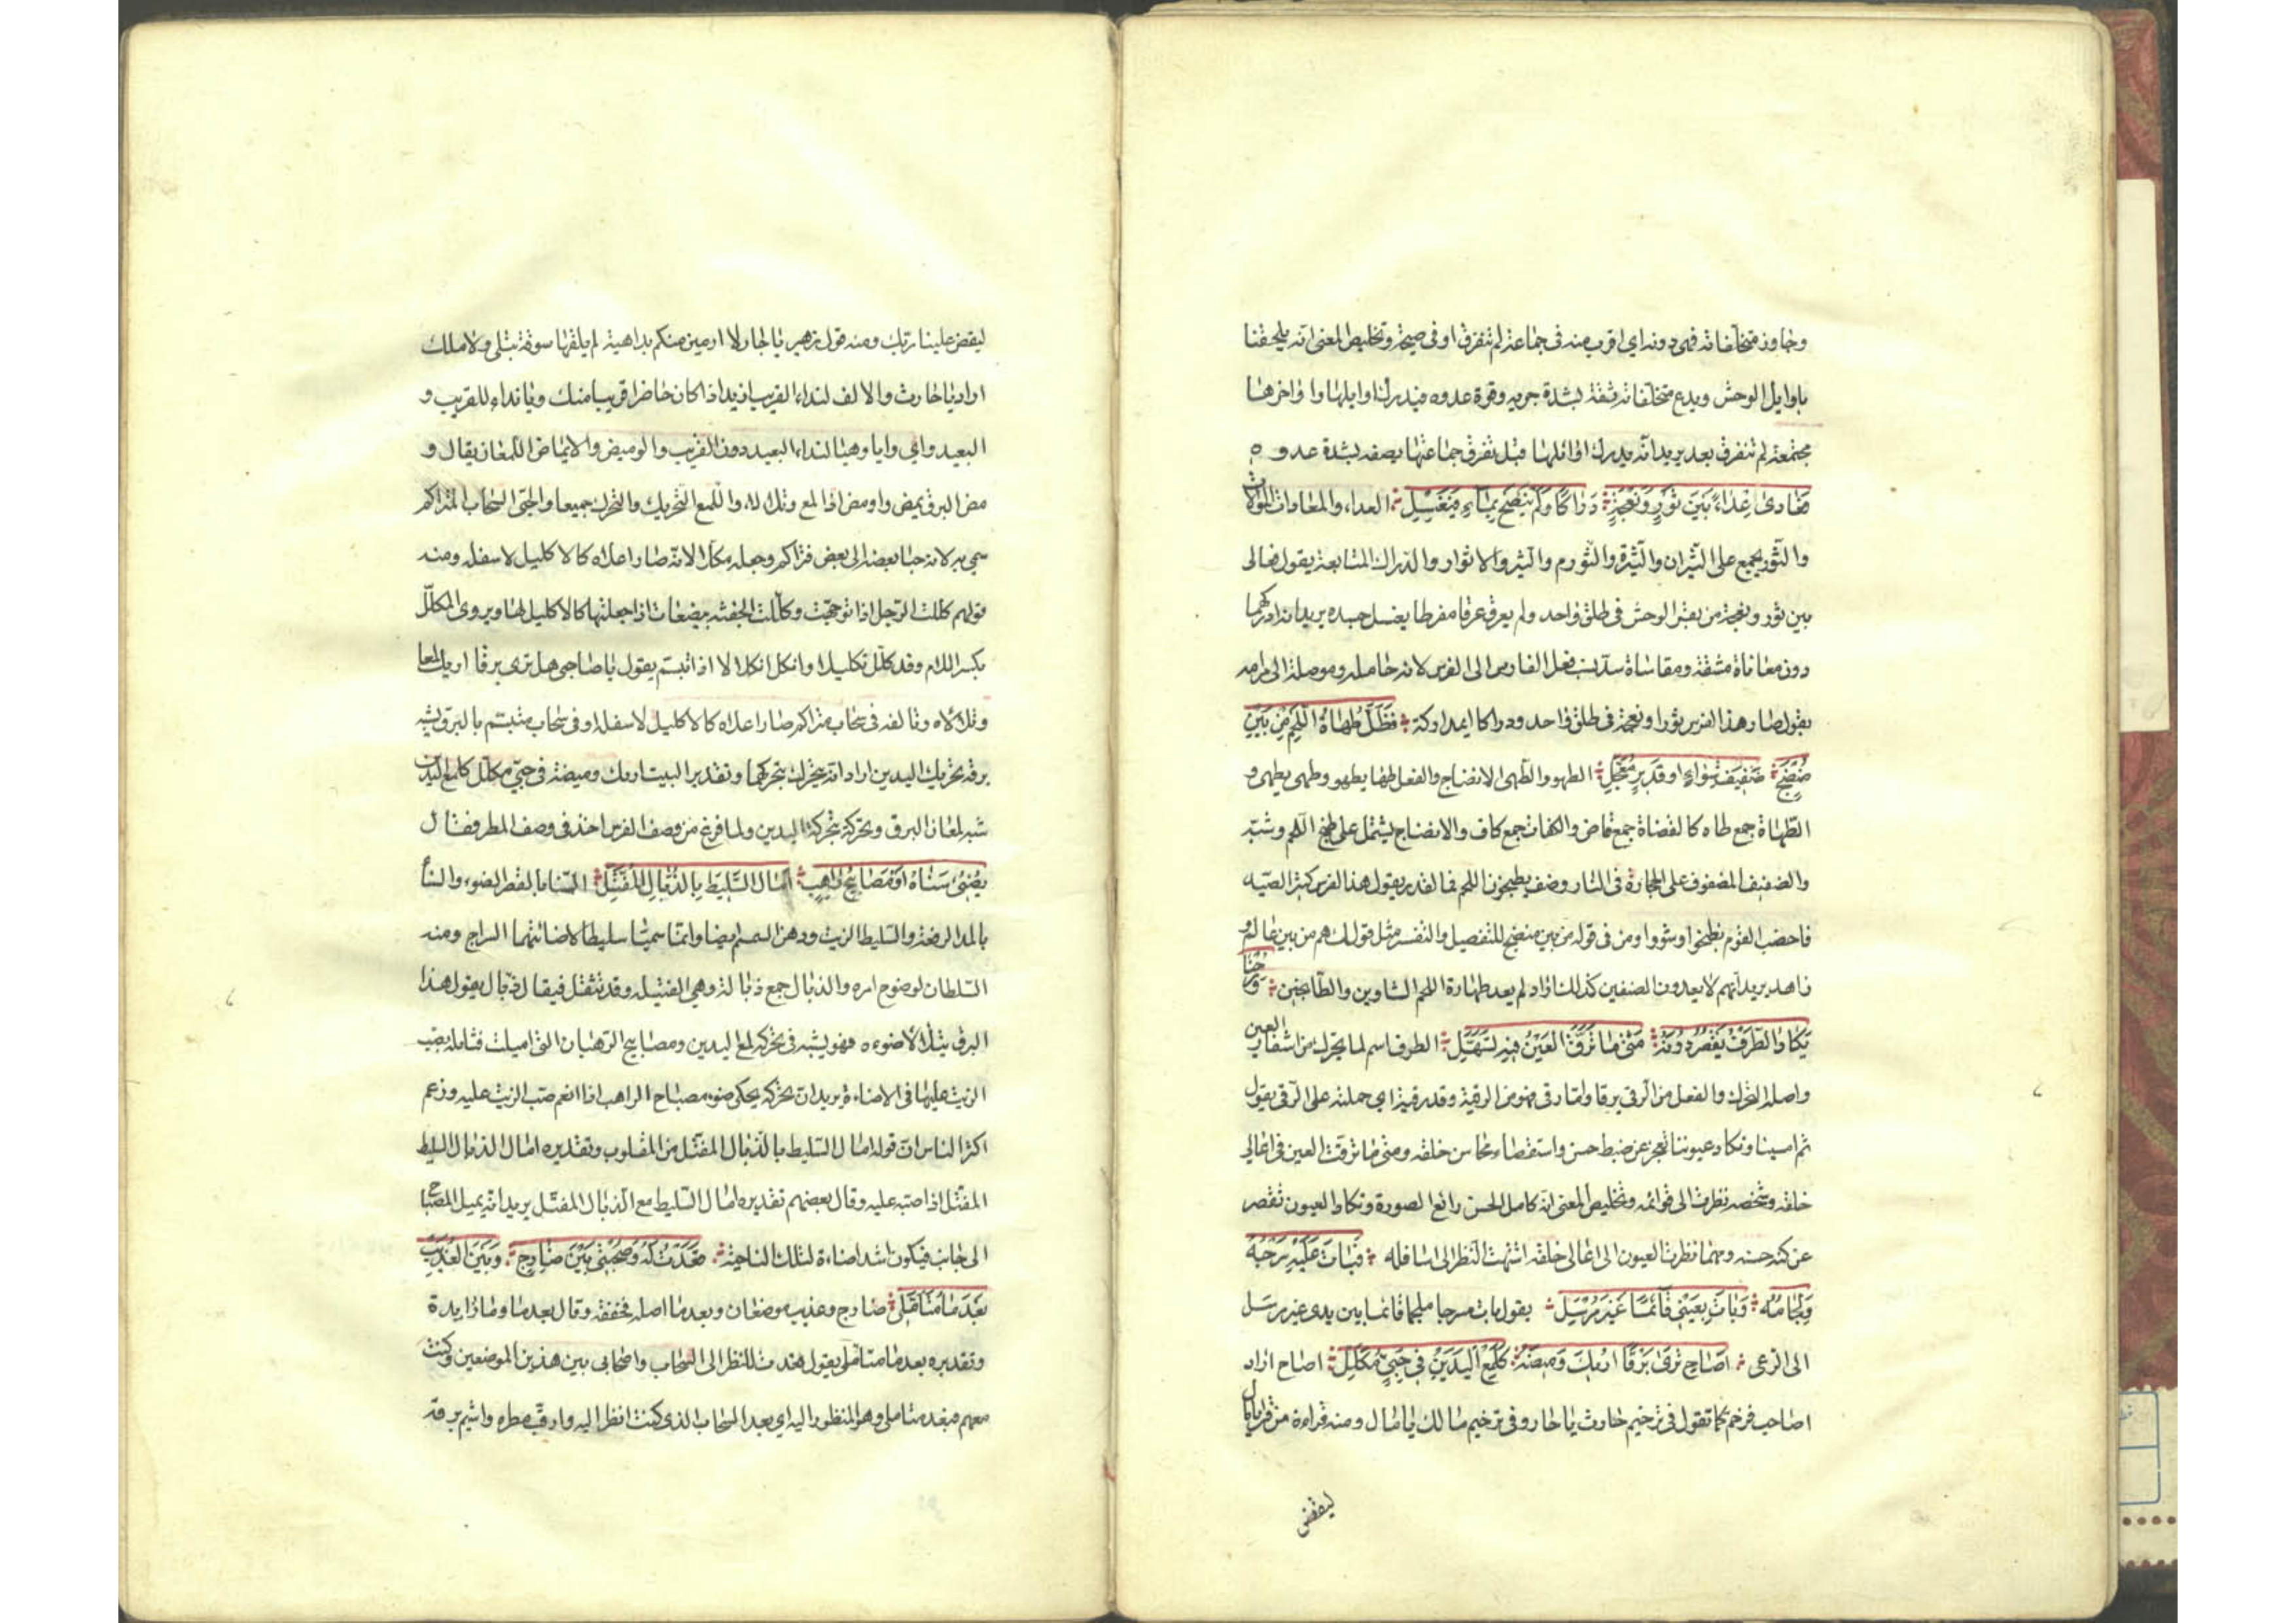 وجاوز متخلفاته فهي دونه اي اقرب منه في جماعة لم تتفرق او في صيحة وتخليص المعنى انه يلحقنا
باوايل الوحش ويدع متخلفاته ثقة بشدة جريه وقوة عدوه فيدرك اوايلها واواخرها
مجتمعة لم تتفرق بعد يريد انه يدرك اوائلها قبل تفرق جماعتها يصفه بشدة عدوه
فَعَادى عِدَاءً بَيْنَ ثَوْرٍ وَنَعْجَةٍ دِرَاكًا وَلَمْ يَنْضَحْ بِمَاءٍ فَيُغْسَلِ العداء والمعادات الموالات
والثور يجمع على الثيران والثيرة والثورم والثيرو الاثوار والدراك المتابعة يقول فوالى
بين ثور ونعجة من بقر الوحش في طلق واحد ولم يعرق عرقا مفرطا يغسل جسده يريد انه ادركهما
دون معاناة مشقة ومقاساة شدة نسب فعل الفارس الى الفرس لانه حامله وموصله الى مرامه
يقول صار هذا الفرس ثورا ونعجة في طلق واحد ودراكا اي مداركة فَظَلَّ طُهَاةُ اللَّحْمِ مِنْ بَيْنِ
مُنْضِجٍ صَفِيفَ شِوَاءٍ او قَدِيرٍ مُعَجَّلِ الطهو والطهى الانضاج والفعل طها يطهو وطهى يطهى و
الطهاة جمع طاه كالقضاة جمع قاض والكفاة جمع كاف والانضاج يشتمل على طبخ اللحم وشيه
والصفيف المصفوف على الحجارة في النار وصف يطبخون اللحم في القدر يقول هذا الفرس كثر الصيد
فاخصب القوم فطبخوا وشووا ومن في قوله من بين منضج للتفصيل والتفسير مثل قولك هم من بين عالم و
زاهد يريد انهم لا يعدون الصنفين كذلك اراد لم يعد طهاة اللحم الشاوين والطابخين وَرُحْنَا
يَكَادُ الطَّرْفُ يَقْصُرُ دُونَهُ مَتَى مَا تَرَقَّ الْعَيْنُ فِيهِ تَسَهَّلِ الطرف اسم لما يتحرك من اشفار العين
واصله التحرك والفعل من الرقى يرقا واما رقى فهو من الرقية وقد رقيته اي حملته على الرقى يقول
ثم امسينا وتكاد عيوننا تعجز عن ضبط حسن واستقصاء محاسن خلقه ومتى ما ترقت العين في اعالي
خلقه وشخصه نظرت الى قوائمه وتخليص المعنى انه كامل الحسن رائع الصورة وتكاد العيون تقصر
عن كنه حسنه ومهما نظرت العيون الى اعالى خلقه اشتهت النظر الى اسافله فَبَاتَ عَلَيْهِ سَرْجُهُ
وَلِجَامُهُ وَبَاتَ بِعَيْنِي قَائِمًا غَيْرَ مُرْسَلِ يقول بات مسرجا ملجما قائما بين يدي غير مرسل
الى الرعى اَصَاحِ تَرَى بَرْقًا اُرِيكَ وَمِيضَهُ كَلَمْعِ الْيَدَيْنِ فِي حَبِيٍّ مُكَلَّلِ اصاح اراد
اصاحب فرخم كما تقول في ترخيم حارث يا حار وفي ترخيم مالك يا مال ومنه قراءة من قرا يا مال
ليقض
ليقض علينا ربك ومنه قول زهير يا حار لا ارمين منكم بداهية لم يلقها سوقة قبلى ولا ملك
اراد يا حارث والالف لنداء القريب ازيد اذا كان حاضرا قريبا منك ويا نداء للقريب و
البعيد واي وايا وهيا لنداء البعيد دون القريب والوميض والايماض اللمعان يقال و
مض البرق يمض واومض اذا لمع وتلالا، واللمع التحريك والتحرك جميعا والحبى السحاب المتراكم
سمي به لانه حبا بعضه الى بعض فتراكم وجعله مكللا لانه صار اعلاه كالاكليل لاسفله ومنه
قولهم كللت الرجل اذا توجته وكللت الجفنة ببضعات اذا جعلتها كالاكليل لها ويروى المكلل
بكسر اللام وقد كلل تكليلا وانكل انكلالا اذا تبسم يقول يا صاحبي هل ترى برقا اريك لمعا
وتلالاه وتالفه في سحاب متراكم صار اعلاه كالاكليل لاسفله او في سحاب متبسم بالبرق يشبه
برقه بتحريك اليدين اراد انه يتحرك بتحركهما وتقدير البيت اريك وميضه في حبي مكلل كلمع اليدين
شبه لمعان البرق وتحركه بتحركة اليدين ولما فرغ من وصف الفرس اخذ في وصف المطر فقال
يُضِيءُ سَنَاهُ اَوْ مَصَابِيحُ رَاهِبٍ اَمَالَ السَّلِيطَ بِالذُّبَالِ الْمُفَتَّلِ السنا بالقصر الضوء والسنا
بالمد الرفعة والسليط الزيت ودهن السمسم ايضا وانما سميا سليطا لاضائتهما السراج ومنه
السلطان لوضوح امره والذبال جمع ذبالة وهي الفتيلة وقد تثقل فيقال ذبّال يقول هذا
البرق يتلالا ضوءه فهو يشبه في تحركه لمع اليدين ومصابيح الرهبان التي اميلت فتائله بصب
الزيت عليها في الاضاءة يريد ان تحركه يحكى ضوء مصباح الراهب اذا انعم صب الزيت عليه وزعم
اكثر الناس ان قوله امال السليط بالذبال المفتل من المقلوب وتقديره امال الذبال السليط
المفتل اذا صبه عليه وقال بعضهم تقديره امال السليط مع الذبال المفتل يريد انه يميل المصباح
الى جانب فيكون اشد اضاءة لتلك الناحية قَعَدْتُ لَهُ وَصُحْبَتِي بَيْنَ ضَارِجٍ وَبَيْنَ الْعُذَيْبِ
بَعْدَ مَا مُتَأَمَّلِي ضارج وعذيب موضعان وبعدما اصله فخففه وقال بعدما وما زايدة
وتقديره بعدما متاملى يقول قعدت للنظر الى السحاب واصحابي بين هذين الموضعين وكنت
معهم فبعد متاملي وهو المنظور اليه اي بعد السحاب الذي كنت انظر اليه وارقب مطره واشيم برقه